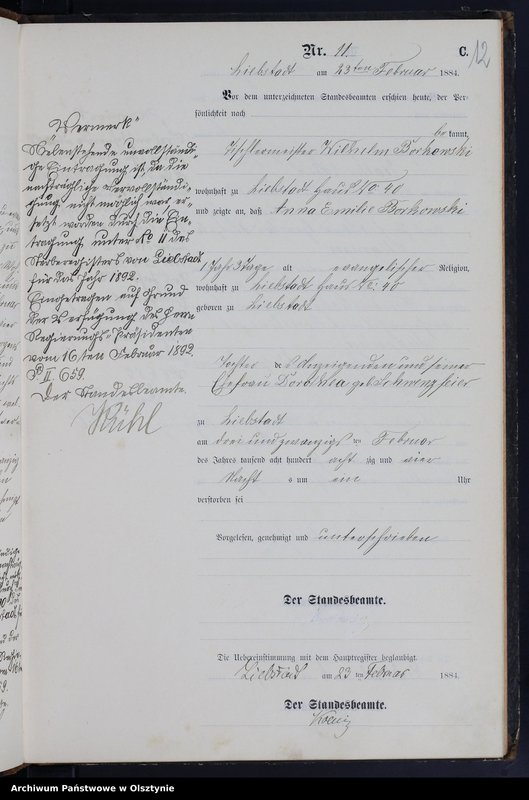 Nr. 11.
C.
12
Liebstadt am 23ten Februar 1884.
Vor dem unterzeichneten Standesbeamten erschien heute, der Per-
sönlichkeit nach
be kannt,
Tischlermeister Wilhelm Borkowski
wohnhaft zu Liebstadt Haus No: 40
und zeigte an, daß Anna Emilie Borkowski
1 Jahr 3 Tage alt evangelischer Religion,
wohnhaft zu Liebstadt Haus No: 40
geboren zu Liebstadt
Tochter de s Anzeigenden und seiner
Ehefrau Dorothea geb.
zu Liebstadt
am drei und zwanzigs ten Februar
des Jahres tausend acht hundert acht zig und vier
Nachts um ein Uhr
verstorben sei
Vorgelesen, genehmigt und unterschrieben
Der Standesbeamte.
Die Uebereinstimmung mit dem Hauptregister beglaubigt.
Liebstadt am 23 ten Februar 1884.
Der Standesbeamte.
"Vermerk"
Nebenstehende unvollständi-
ge Eintragung ist, da die
nachträgliche Vervollständi-
gung nicht möglich war, er-
setzt worden durch die Ein-
tragung unter No 11 des
Sterberegisters von Liebstadt
für das Jahr 1892.
Eingetragen auf Grund
der Verfügung des Herrn
Regierungs-Präsidenten
vom 16ten Februar 1892.
II 659.
Der Standesbeamte.
Kühl
Archiwum Państwowe w Olsztynie